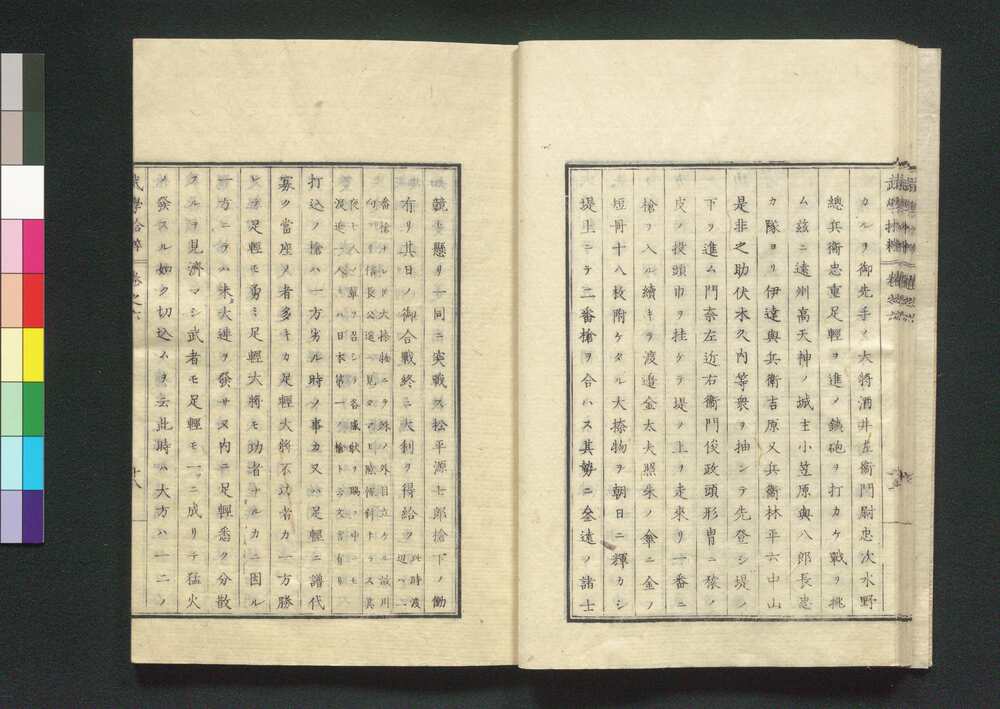 カルヲ御先手ノ大將酒井左衞門尉忠次水野
總兵衞忠重足輕ヲ進メ鐵砲ヲ打カケ戰ヲ挑
ム茲ニ遠州高天神ノ城主小笠原與八郎長忠
カ隊ヨリ伊達與兵衞吉原又兵衞林平六中山
是非之助伏木久內等衆ヲ抽シテ先登シ堤ノ
下ヲ進ム門奈左近右衞門俊政頭形冑ニ猿ノ
皮ノ投頭巾ヲ挂ケテ堤ノ上ヲ走來リ一番ニ
槍ヲ入ル續キテ渡邉金太夫照朱ノ傘ニ金ノ
短冊十八枚附ケタル大捺物ヲ朝日ニ輝カシ
堤上ニテ二番槍ヲ合ハス其勢ニ金遠ノ諸士
競ヒ懸リ一同ニ実戰ス松平源七郎槍下ノ働
有リ其日ノ御合戰終ニ大利ヲ得給ヲ
打込ノ槍ハ一方劣ル時ノ事カ又ハ足輕ニ譜代
寡ク當座ノ者多キカ足輕大將不功者カ一方勝
足輕モ勇ミ足輕大將モ功者ナルカニ因ル
一方ニテハ未大進ヲ發サヌ內ニ足輕悉ク分散
スルヲ見濟マシ武者モ足輕モ一ニ成リテ猛火
ノ發スル如ク切込ムヲ云此時ハ大方ハ一二ノ
卷之六